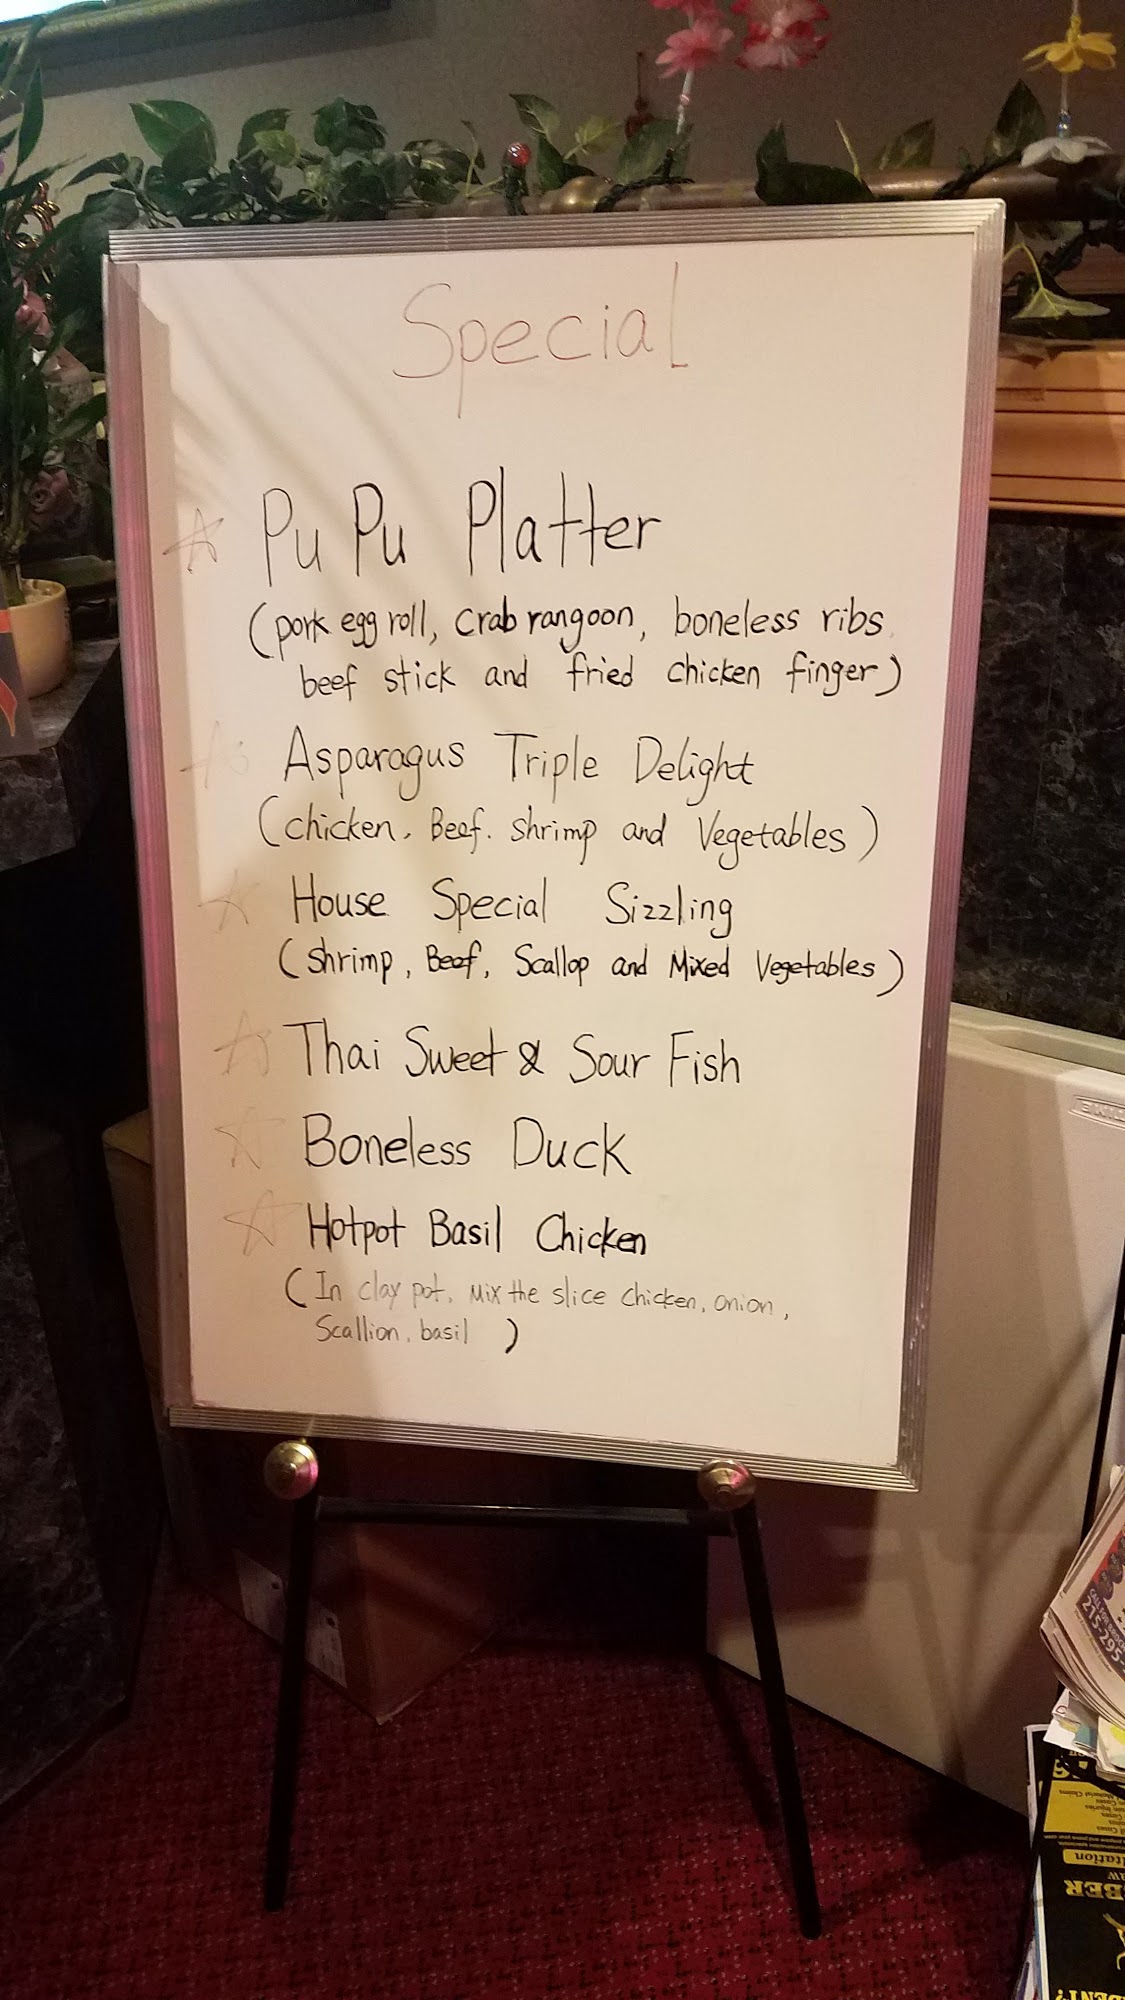 Special
Pu Pu Platter
(pork egg roll, crab rangoon, boneless ribs,
beef stick and fried chicken finger)
Asparagus Triple Delight
(chicken, Beef. shrimp and Vegetables)
House Special Sizzling
(shrimp, Beef, Scallop and Mixed Vegetables)
Thai Sweet & Sour Fish
Boneless Duck
Hotpot Basil Chicken
(In clay pot, Mix the slice chicken, onion,
Scallion, basil)
215-295-